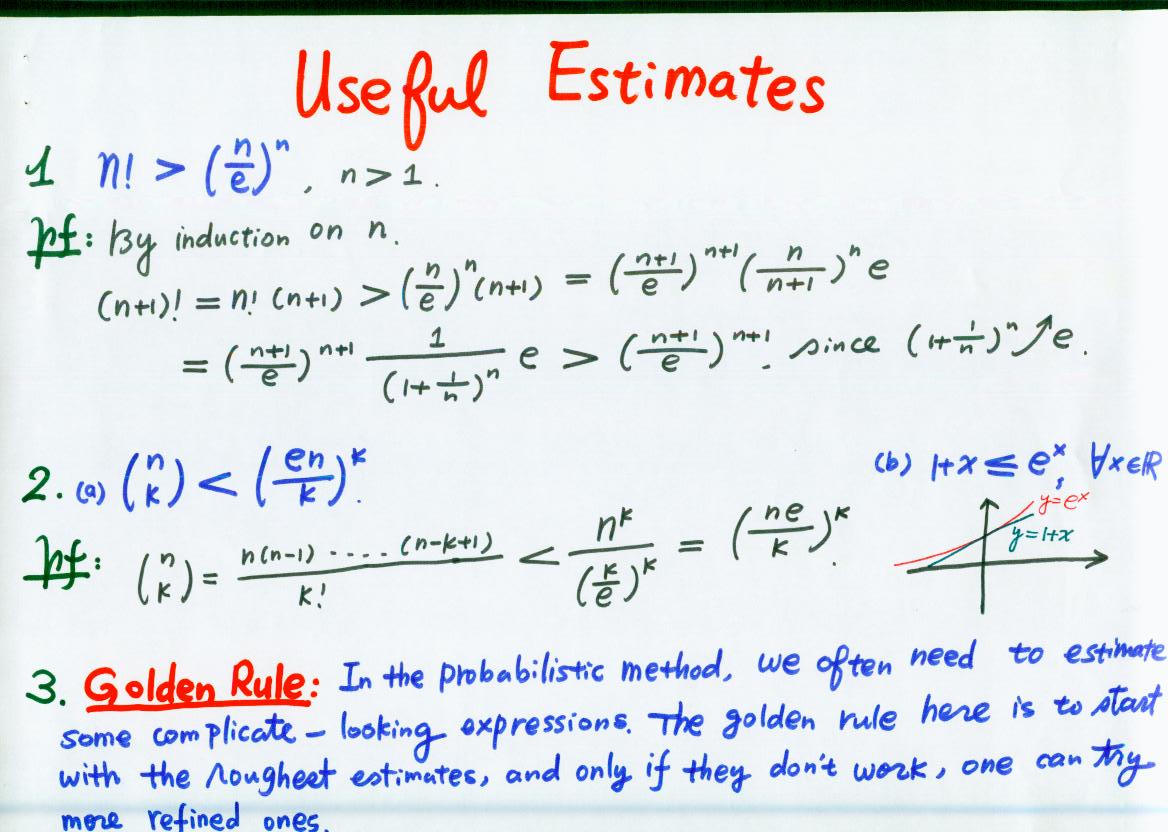 Useful Estimates
1 n! > (n/e)^n, n > 1.
pf: By induction on n.
(n+1)! = n! (n+1) > (n/e)^n (n+1) = ((n+1)/e)^(n+1) (n/(n+1))^n e
= ((n+1)/e)^(n+1) 1/(1+1/n)^n e > ((n+1)/e)^(n+1). since (1+1/n)^n ↗ e.
2. (a) (n k) < (en/k)^k. (b) 1+x ≤ e^x, ∀x∈ℝ
y=e^x
y=1+x
pf: (n k) = n(n-1) ····· (n-k+1)/k! < n^k/(k/e)^k = (ne/k)^k.
3. Golden Rule: In the probabilistic method, we often need to estimate
some complicate – looking expressions. The golden rule here is to start
with the roughest estimates, and only if they don't work, one can try
more refined ones.